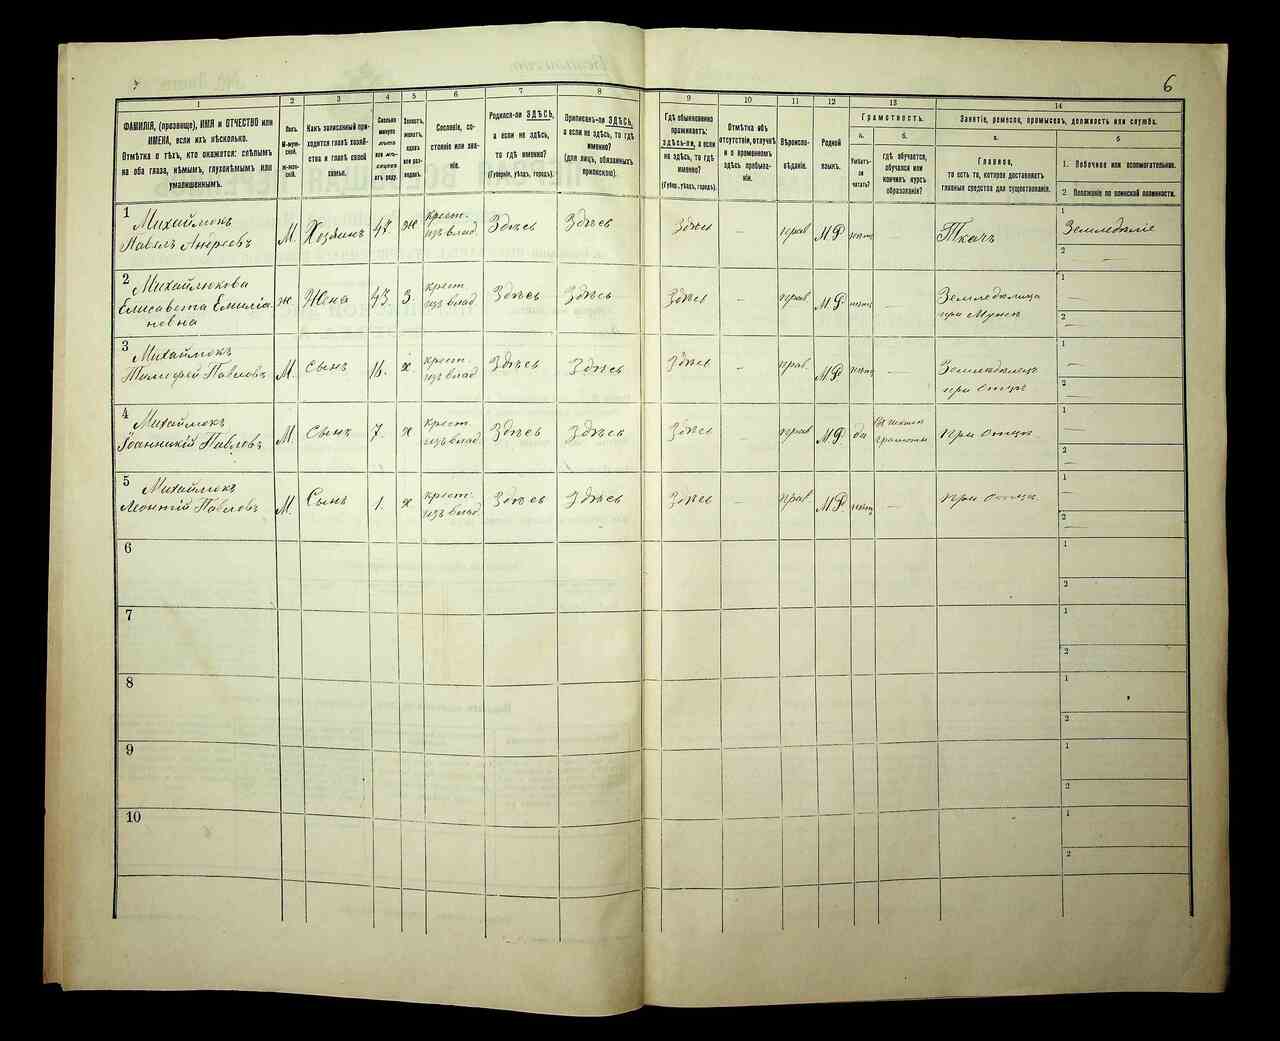 6
1
2
3
4
5
6
7
8
9
10
11
12
13
14
ФАМИЛІЯ, (прозвище), ИМЯ и ОТЧЕСТВО или
ИМЕНА, если ихъ нѣсколько.
Отмѣтка о тѣхъ, кто окажется: слѣпымъ
на оба глаза, нѣмымъ, глухонѣмымъ или
умалишеннымъ.
Полъ.
М-муж-
ской.
Ж-жен-
скій.
Какъ записанный при-
ходится главѣ хозяй-
ства и главѣ своей
семьи.
Сколько
минуло
лѣтъ
или мѣ-
сяцевъ
отъ роду.
Холостъ,
женатъ,
вдовъ
или раз-
веденъ.
Сословіе, со-
стояніе или зва-
ніе.
Родился-ли ЗДѢСЬ,
а если не здѣсь,
то гдѣ именно?
(Губернія, уѣздъ, городъ).
Приписанъ-ли ЗДѢСЬ,
а если не здѣсь, то гдѣ
именно?
(для лицъ, обязанныхъ
припискою).
Гдѣ обыкновенно
проживаетъ:
ЗДѢСЬ-ли, а если
не здѣсь, то гдѣ
именно?
(Губер., уѣздъ, городъ).
Отмѣтка объ
отсутствіи, отлучкѣ
и о временномъ
здѣсь пребыва-
ніи.
Вѣроиспо-
вѣданіе.
Родной
языкъ.
Грамотность.
а.
Умѣетъ-
ли
читать?
б.
гдѣ обучается,
обучался или
кончилъ курсъ
образованія?
Занятіе, ремесло, промыселъ, должность или служба.
а.
Главное,
то есть то, которое доставляетъ
главныя средства для существованія.
б
1. Побочное или вспомогательное.
2 Положеніе по воинской повинности.
1
Михаймюкъ
Павелъ Андреевъ
М.
Хозяинъ
47.
ж
крест.
изъ влад.
Здѣсь
Здѣсь
Здѣсь
–
прав
МР
нѣтъ
–
Ткачъ
1
Земледѣліе
2
–
2
Михаймюкова
Елисавета Емиліа
новна
ж.
Жена
43.
З.
крест
изъ влад
Здѣсь
Здѣсь
Здѣсь
–
прав
МР
нѣтъ
–
Земледѣлица
при Мужѣ
1
–
2
–
3
Михаймюкъ
Тимофей Павловъ
М.
Сынъ
16.
х
крест
изъ влад
Здѣсь
Здѣсь
Здѣсь
–
прав.
МР
нѣтъ
–
Земледѣлецъ
при Отцѣ
1
–
2
–
4
Михаймюкъ
Іоанникій Павловъ
М.
Сынъ
7.
х
крест
изъ влад.
Здѣсь
Здѣсь
Здѣсь
–
прав
МР.
да
школѣ
грамоты
при отцѣ
1
–
2
–
5
Михаймюкъ
Леонтій Павловъ
М.
Сынъ
1.
х
крест.
изъ влад.
Здѣсь
Здѣсь
Здѣсь
–
прав
МР.
нѣтъ
–
при отцѣ.
1
–
2
–
6
1
2
7
1
2
8
1
2
9
1
2
10
1
2